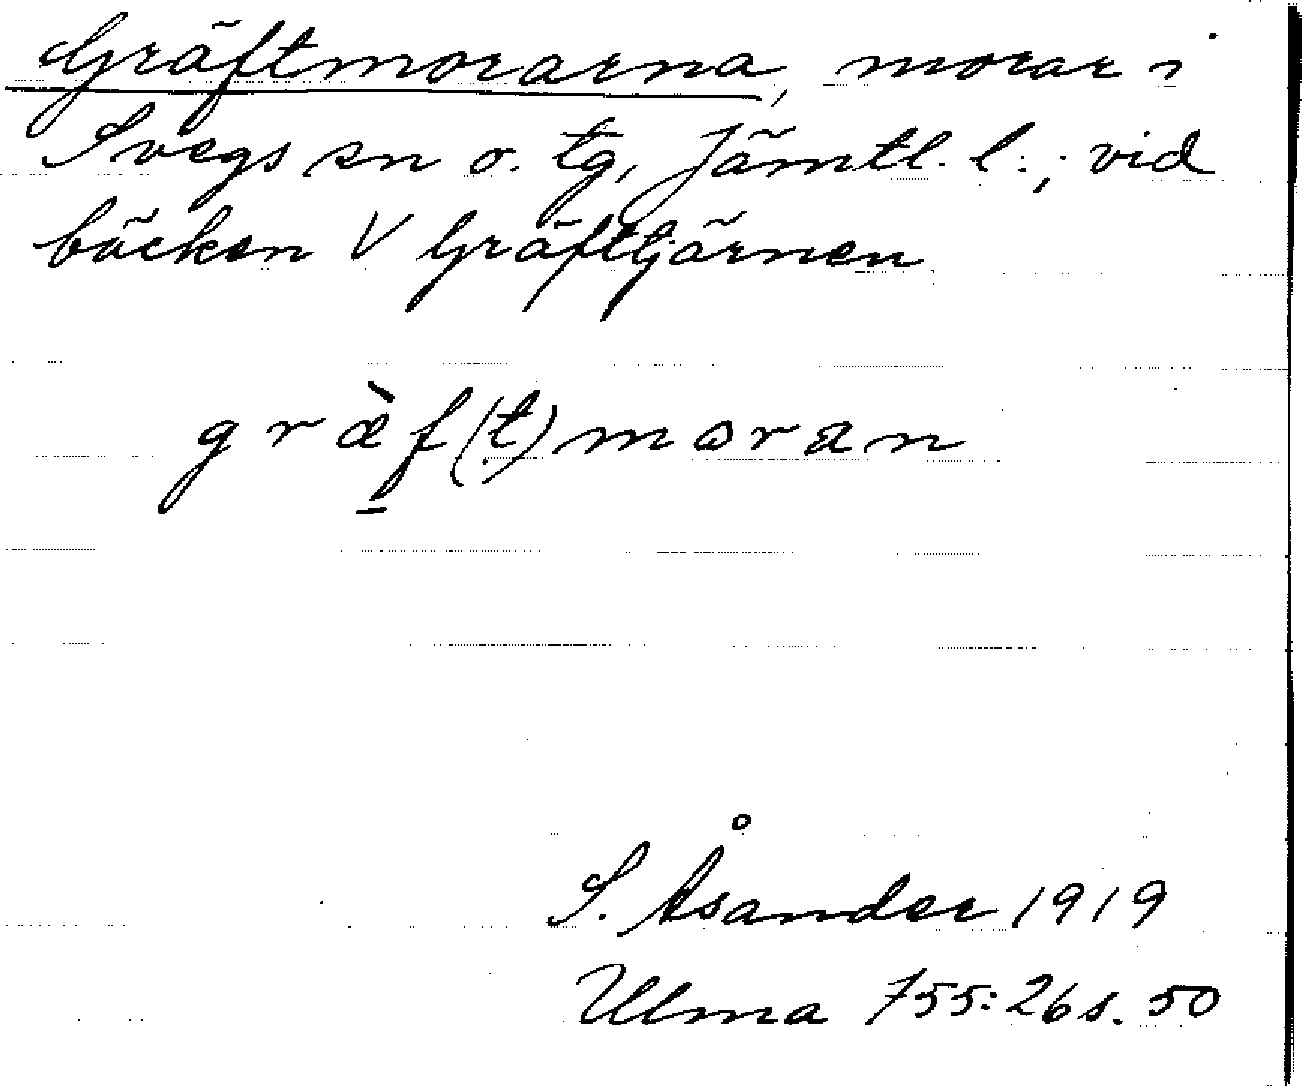 Gräftmorarna, morar i
Svegs sn o. tg, Jämtl. l.; vid
bäcken V Gräftjärnen
græ̀f(t)moran
S. Åsander 1919
Ulma 755:26 s. 50